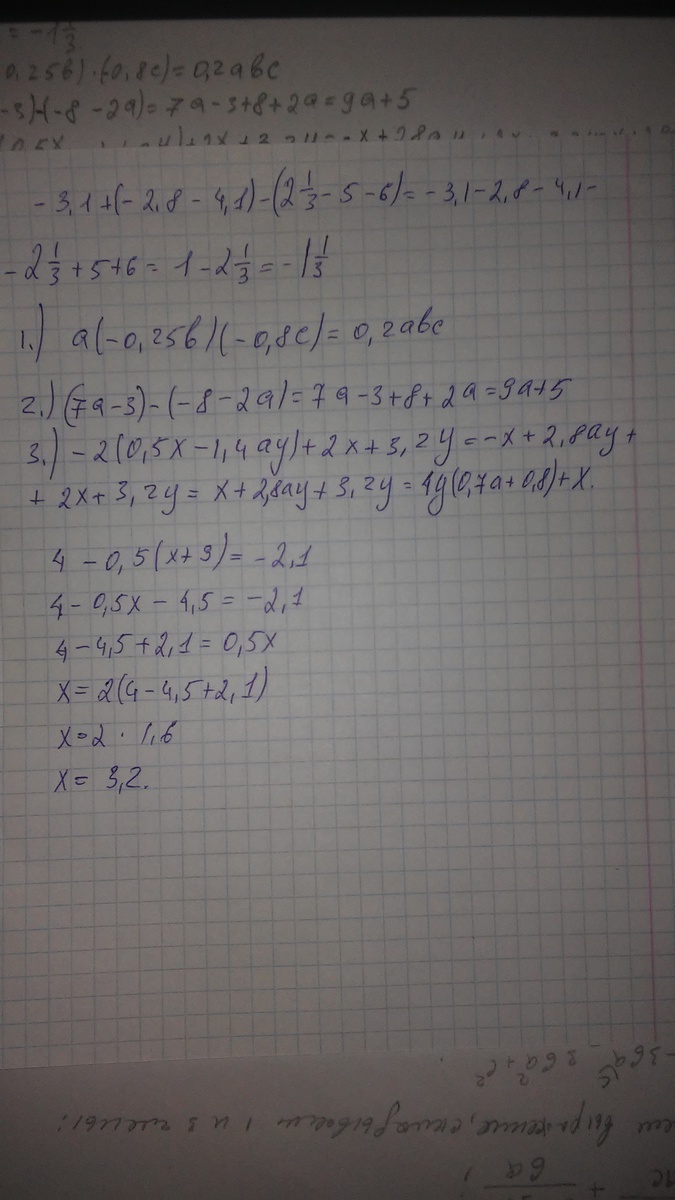 = -1 1/3
0,25b) · (-0,8c) = 0,2abc
-3)-(-8-2a)= 7a-3+8+2a=9a+5
-3,1+(-2,8-4,1)-(2 1/3-5-6)=-3,1-2,8-4,1-
-2 1/3+5+6= 1-2 1/3=-1 1/3
1.) a(-0,25b)(-0,8c)= 0,2abc
2.) (7a-3)-(-8-2a)=7a-3+8+2a=9a+5
3.) -2(0,5x-1,4ay)+2x+3,2y=-x+2,8ay+
+ 2x+3,2y= x+2,8ay+3,2y=4y(0,7a+0,8)+x.
4 -0,5(x+9)= -2,1
4-0,5x-4,5=-2,1
4-4,5+2,1=0,5x
x=2(4-4,5+2,1)
x=2 · 1,6
x= 3,2.
выражение,
1 и 3 члены: